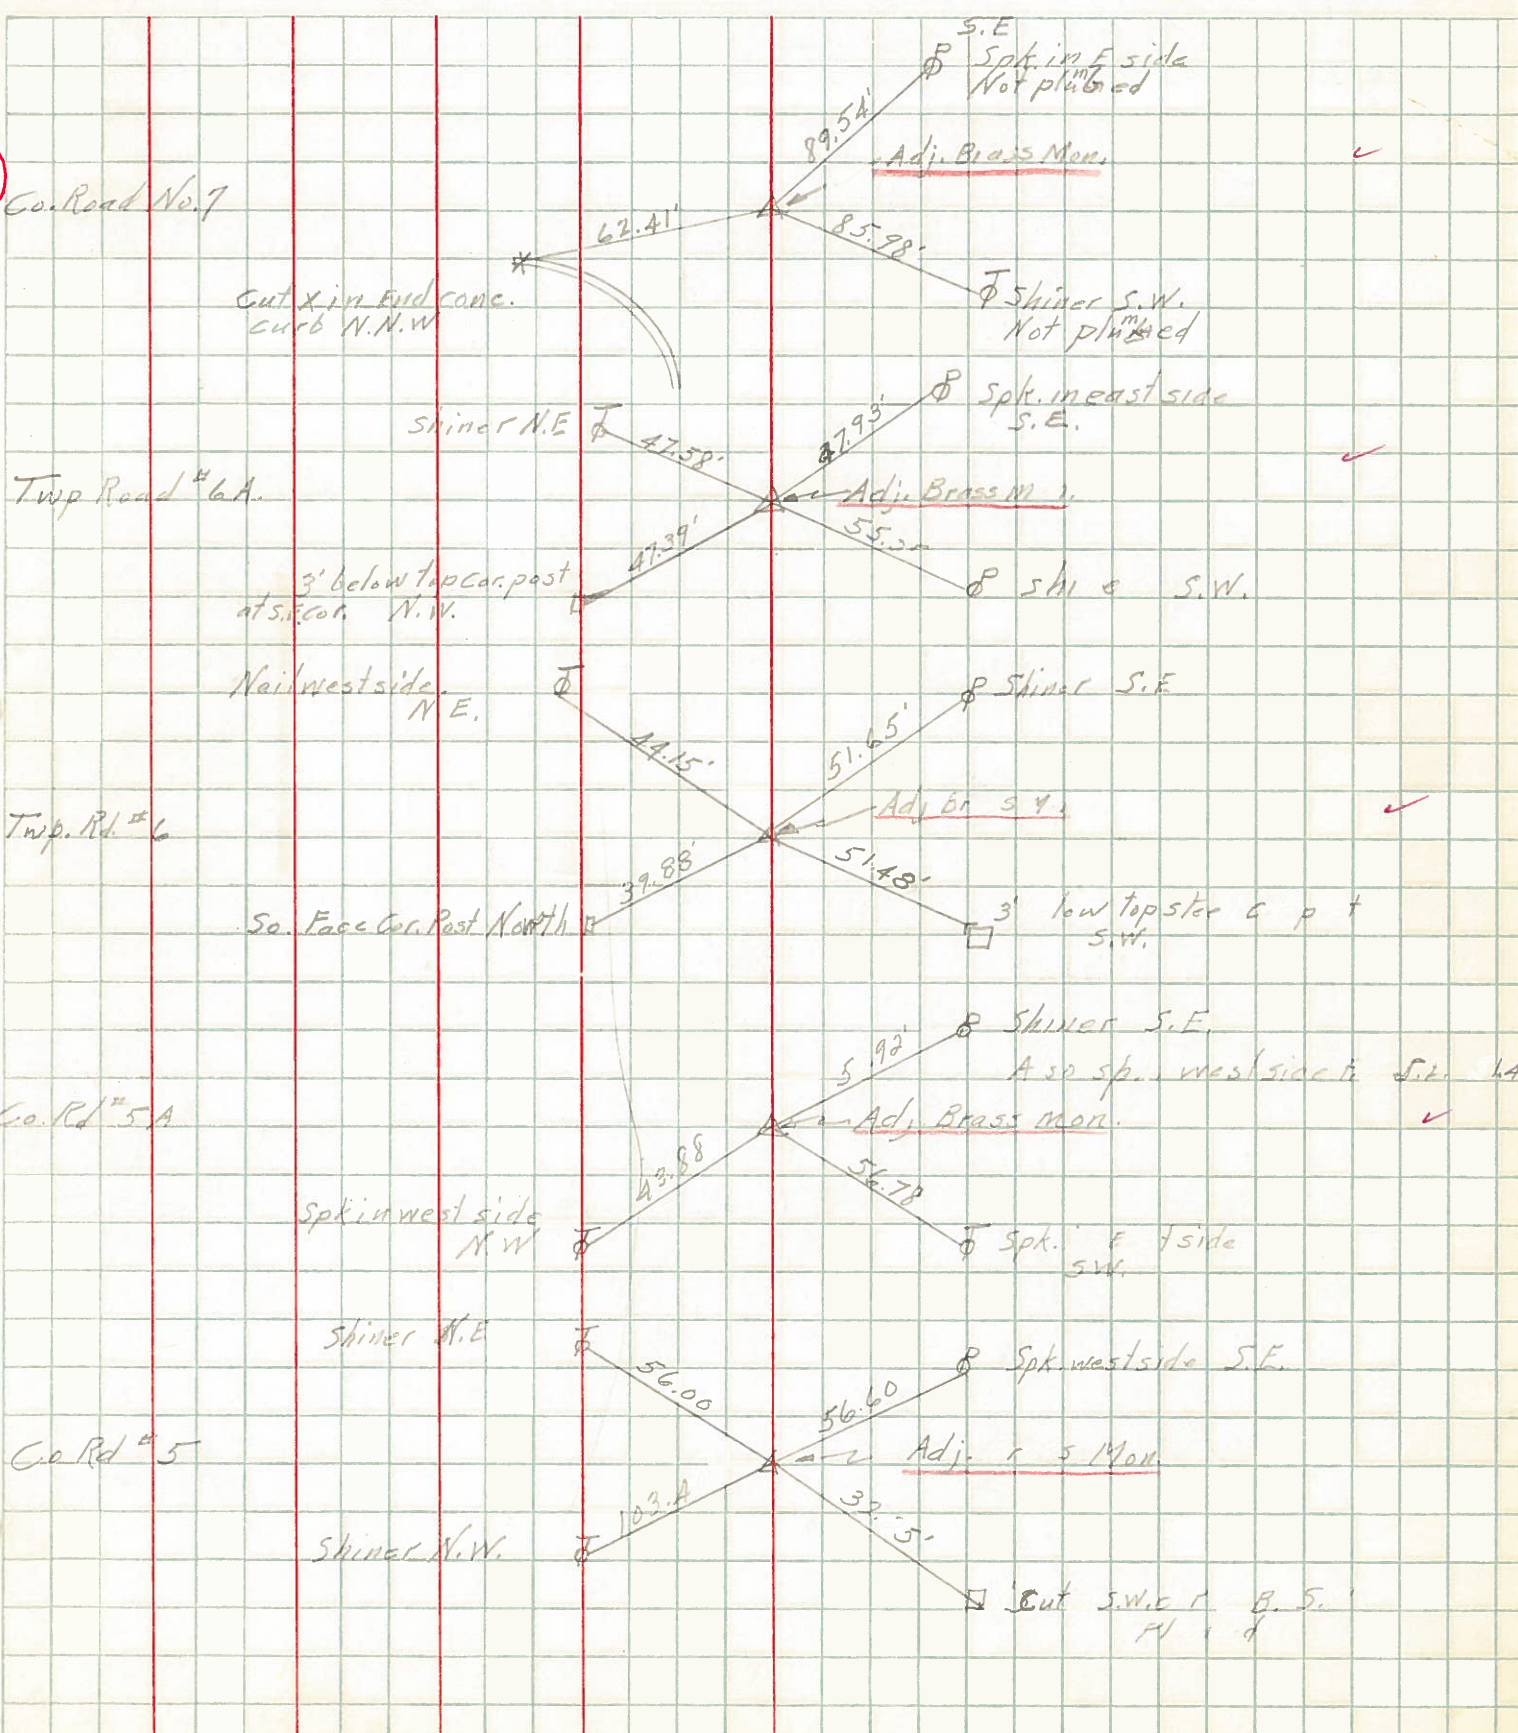 S.E
Spk. in E side
Not plumbed
89.54'
Adj. Brass Mon.
Co. Road No. 7
62.41'
85.98'
Cut X in End conc.
curb N.N.W
Shiner S.W.
Not plumbed
Spk. in east side
S.E.
Shiner N.E
47.58'
47.93'
Twp Road #6A.
Adj. Brass
47.39'
3' below top cor. post
at S.E. cor. N.W.
S.W.
Nail west side.
N.E.
Shiner S.E
44.15'
51.65'
Twp. Rd. #6
Adj
39.88'
51.48'
So. Face Cor. Post North
3' top
S.W.
Shiner S.E.
west side
Co. Rd #5A
Adj. Brass Mon.
43.88
56.78
Spk in west side
N.W
Spk. side
S.W.
Shiner N.E
Spk. west side S.E.
56.00
56.60
Co Rd #5
Adj. Mon.
Shiner N.W.
Cut S.W.